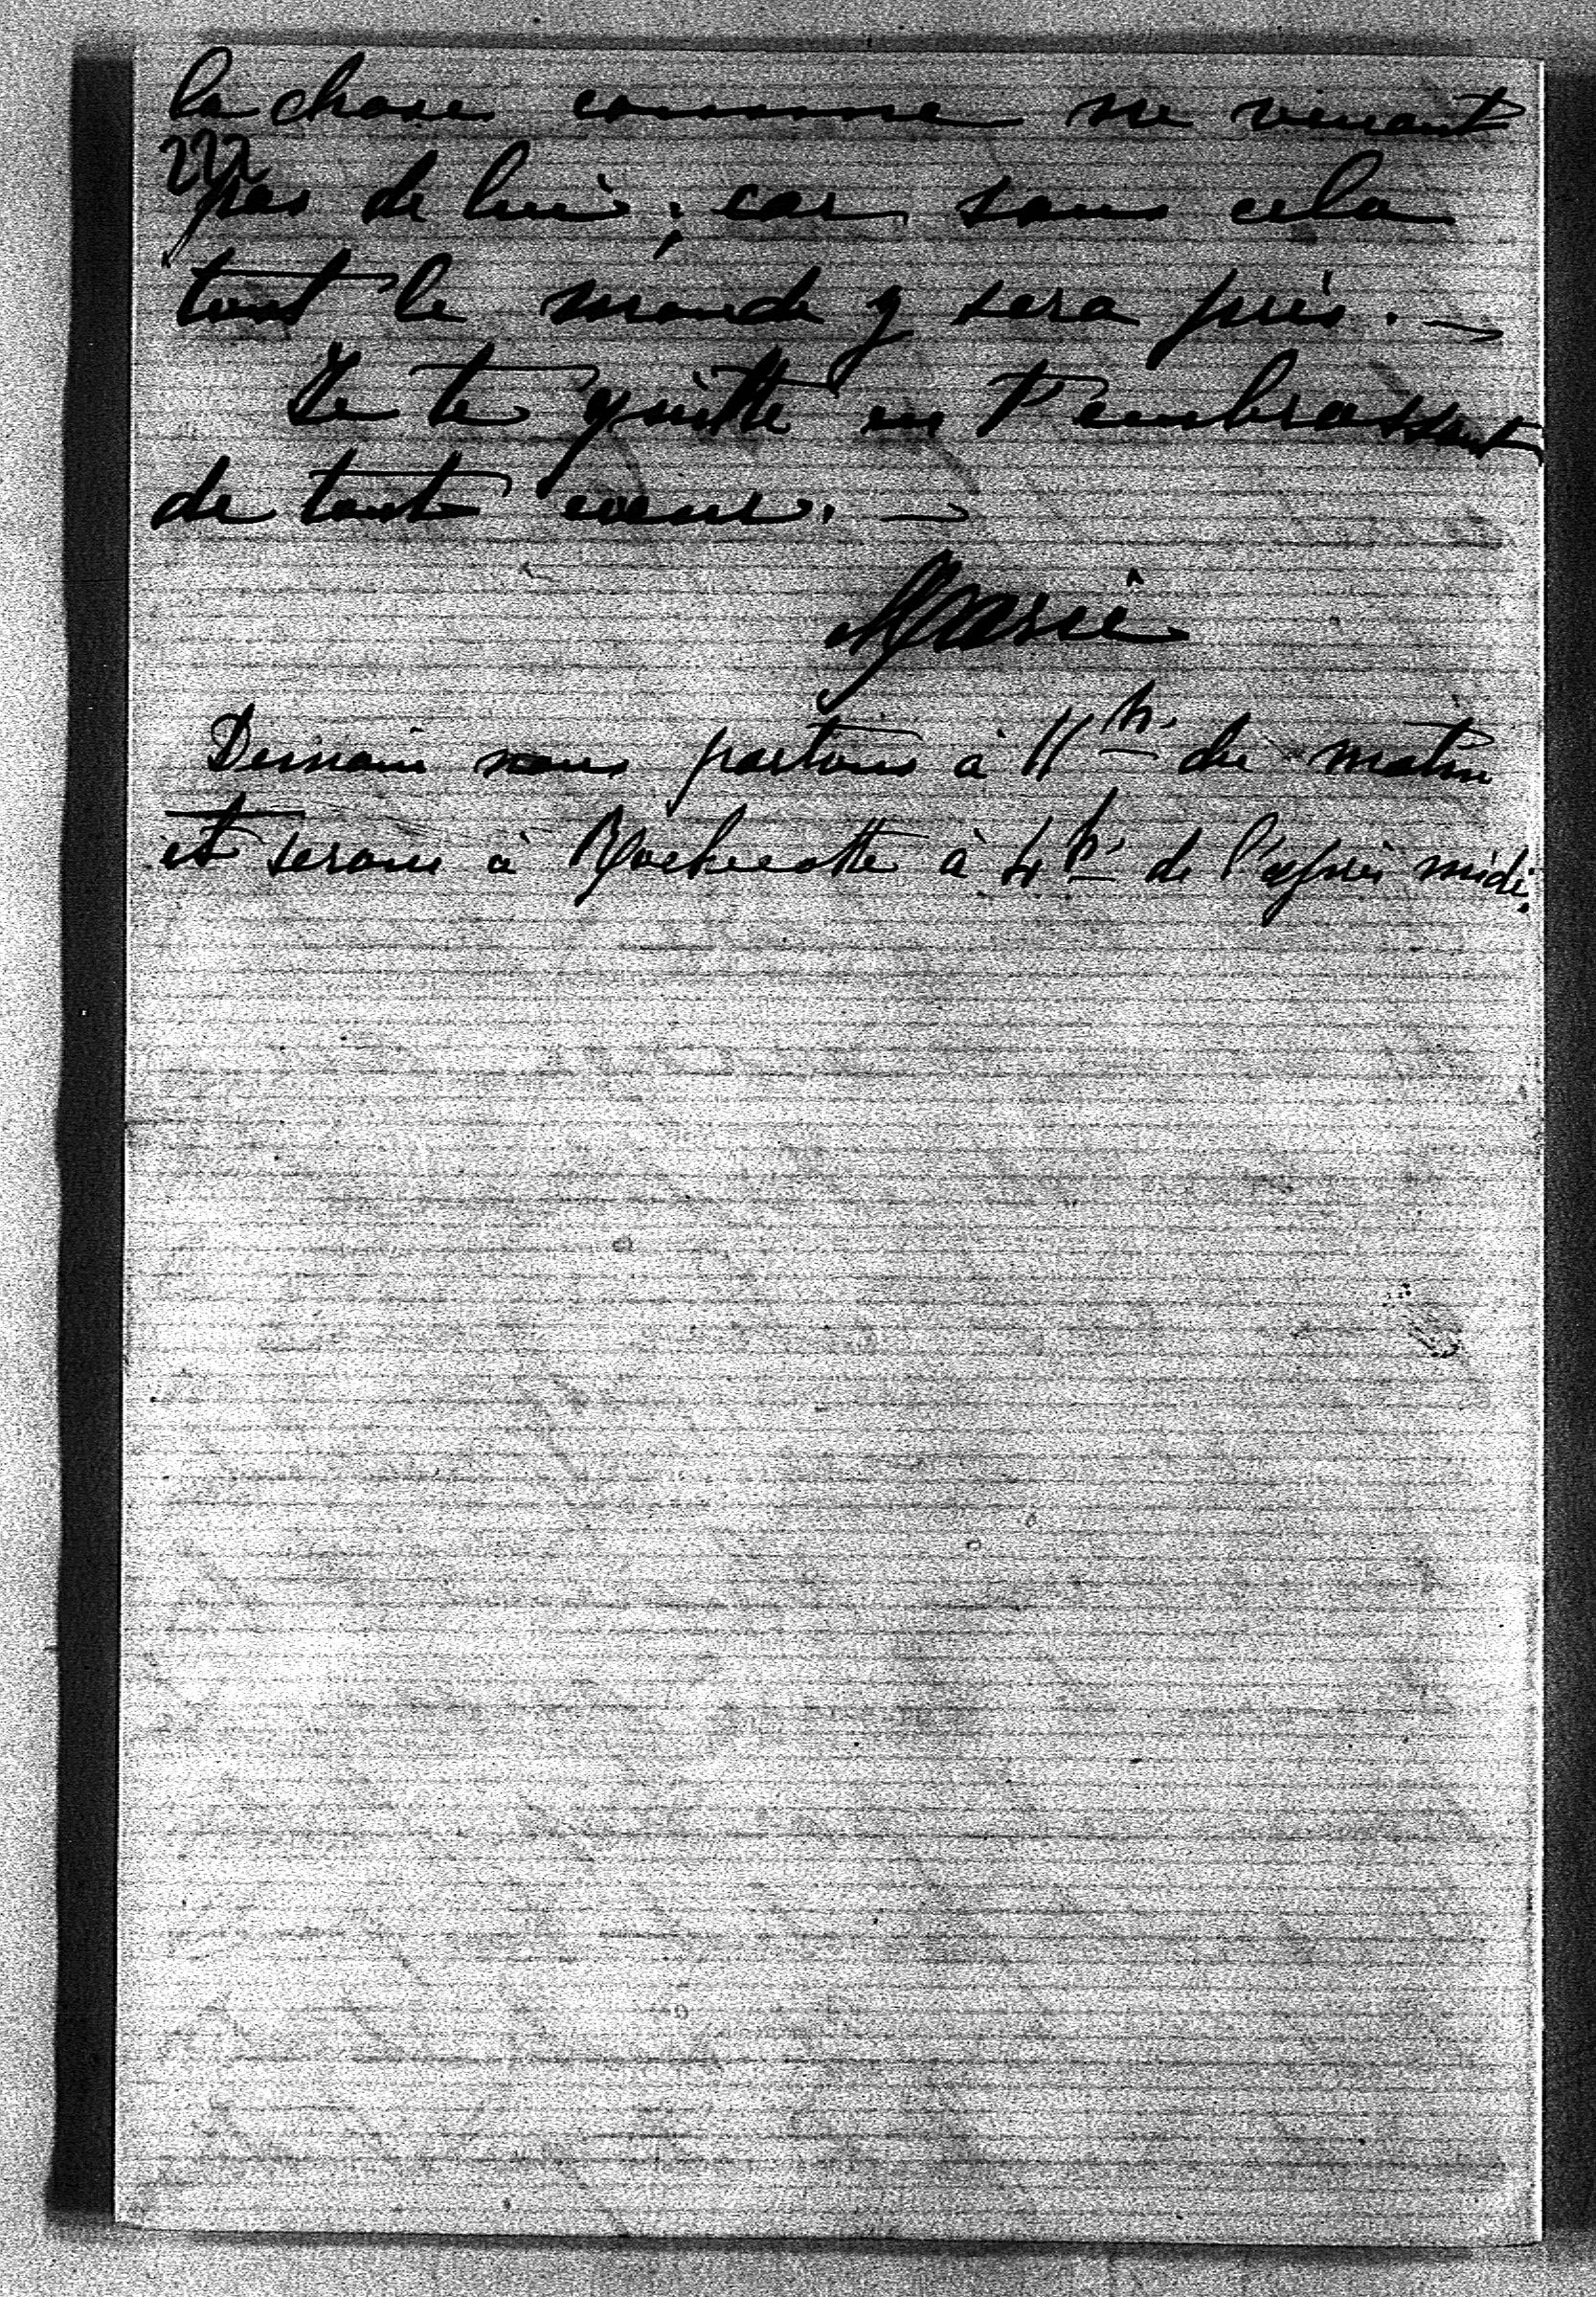 la chose comme ne venant
222
pas de lui ; car sans cela
tout le monde y sera pris. —
Je te quitte en t'embrassant
de tout coeur. —
Marie
Demain nous partons à 11 h. du matin
et serons à Rochecotte à 4 h. de l'après midi.